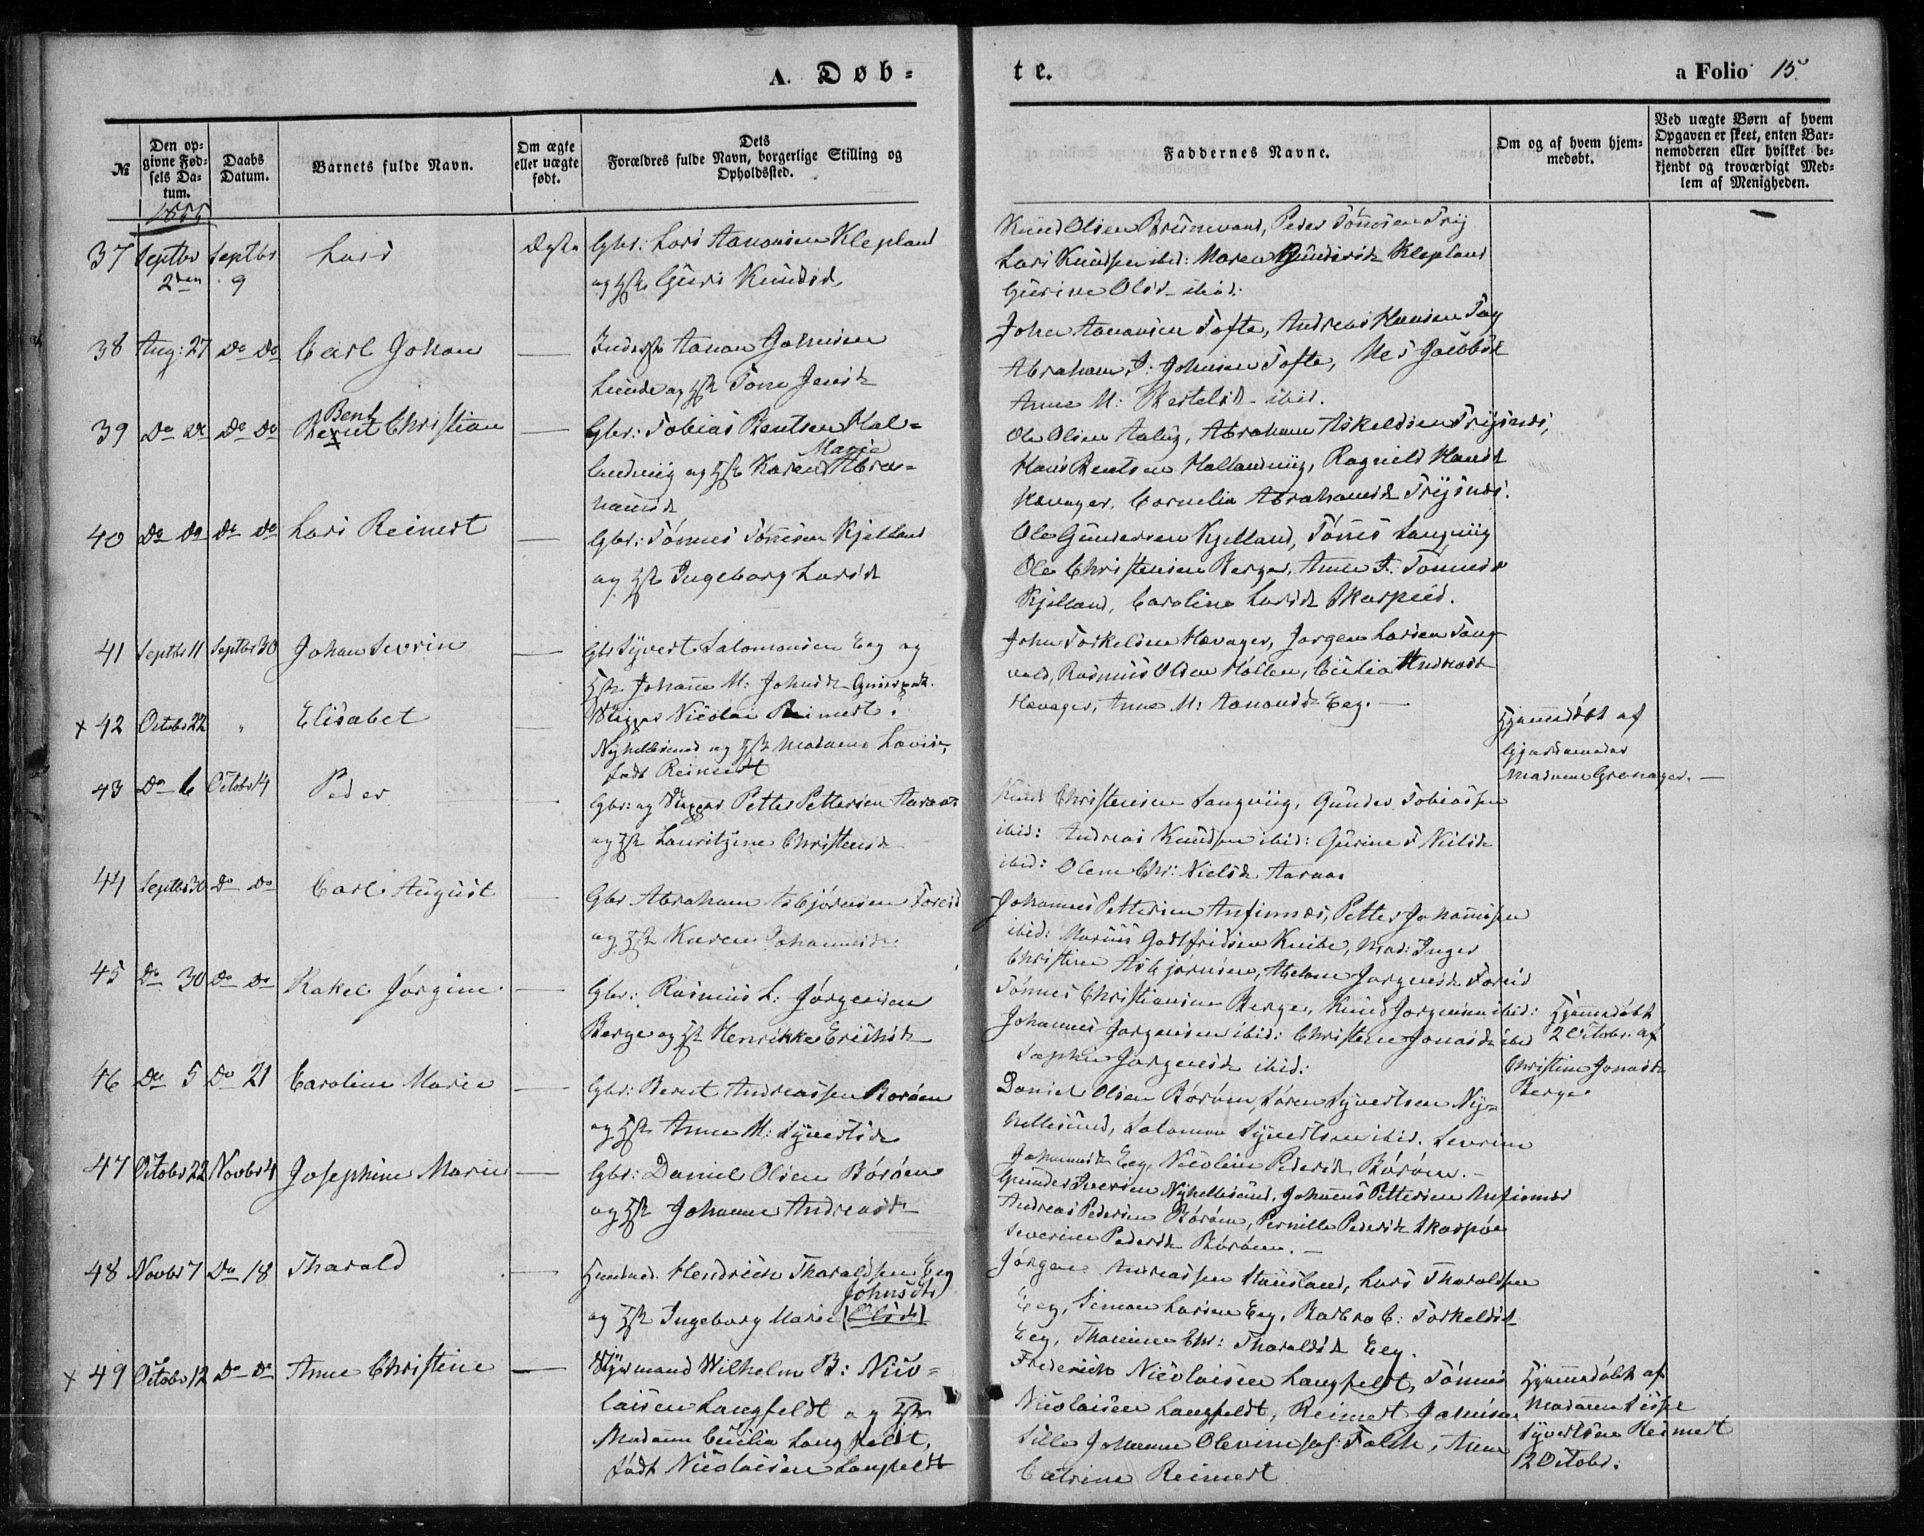 A. Døb-
te.
a Folio 15.
№
Den op-
givne Fød-
sels Da-
tum.
Daabs
Datum.
Barnets fulde Navn.
Om ægte
eller uægte
født.
Dets
Forældres fulde Navn, borgerlige Stilling og
Opholdssted.
Faddernes Navne.
Om og af hvem hjem-
medøbt.
Ved uægte Børn af hvem
Opgaven er skeet, enten Bar-
nemoderen eller hvilket be-
kjendt og troværdigt Med-
lem af Menigheden.
1855
37 Septbr 2den Septbr 9 Lars Ægte Gbr: Lars Aanonsen Klepland
og Hst Guri Knudsd
Knud Olsen Brunvand, Peder Tønnesen Try
Lars Knudsen ibid: Maren Gundersd Klepland
Gurine Olsd ibid:
38 Aug: 27 Do Do Carl Johan — Inderst Aanon Johnsen
Lunde og Hst Tone Jensd
John Aanonsen Tofte, Andreas Hansen
Abraham J: Johnsen Tofte, Jacobsd
Anne M: Kertelsd ibid.
39 Do Do Do Do Bent Christian — Gbr: Tobias Bentsen Hal-
landviig og Hst Karen Marie Abra-
hamsd
Ole Olsen Aaby, Abraham Askeldsen Trysnes,
Hans Bentsen Hallandviig, Ragnild Hansd
Havager, Cornelia Abrahamsd Trysnes.
40 Do Do Do Do Lars Reinert — Gbr: Tønnes Tønnesen Kjelland
og Hst Ingeborg Larsd
Ole Gundersen Kjelland, Tønnes Langviig
Ole Christensen Berge, Anne T. Tønnesd
Kjelland, Caroline Larsd Skarpeid.
41 Septbr 11 Septbr 30 Johan Severin — Gbr Syvert Salomonsen Eeg og
Hst Johanne M: Johnsd
John Torkeldsen Havager, Jørgen Larsen Tang-
vald, Rasmus Olsen Høllen, Cecilia Andreasd
Havager, Anne M: Aanonsd Eeg. —
x 42 Octobr 22 " Elisabet — Skipper Nicolai Reinert.
Nyhellesund og Hst Madame Lovise,
født Reinert
Hjemmedøbt af
Gjordemoder
Madame Grønager. —
43 Do 6 Octobr 14 Peder — Gbr: og Skipper Petter Pettersen Aaraas
og Hst Lauritzine Christensd
Knud Christensen Langviig, Gunder Tobiassen
ibid: Andreas Knudsen ibid: Gurine T Nielsd
ibid: Olene Chr: Nielsd Aaraas
44 Septbr 30 Do Do Carl August — Gbr Abraham Asbjørnsen Foreid
og Hst Karen Johannesd
Johannes Pettersen Anfinnæs, Petter Johannesen
ibid: Marius Godtfridsen Knibe, Mad: Inger
Christine Asbjørnsen, Abelone Jørgensd Foreid
45 Do 30 Do Do Rakel Jørgine — Gbr: Rasmus L: Jørgensen
Berge og Hst Henrikke Erichsd
Tønnes Christiansen Berge, Knud Jørgensen ibid:
Johannes Jørgensen ibid: Christine Jonasd ibid
Sophie Jørgensd ibid:
Hjemmedøbt
2 Octobr. af
Christine Jonasd
Berge
46 Do 5 Do 21 Caroline Marie — Gbr: Berent Andreassen Borøen
og Hst Anne M: Syvertsd
Daniel Olsen Borøen, Søren Syvertsen Ny-
hellesund, Salomon Syvertsen ibid. Severine
Johannesd Eeg, Nicoline Pedersd Borøen. —
47 Octobr 22 Novbr 4 Josephine Marie — Gbr: Daniel Olsen Borøen
og Hst Johanne Andreasd
Gunder Iversen Nyhellesund, Johannes Pettersen Anfinnæs
Andreas Pedersen Borøen, Pernille Pedersd Skarpøe
Severine Pedersd Borøen. —
48 Novbr 7 Do 18 Tharald — Huusmd. Hendrich Tharaldsen Eeg
og Hst Ingeborg Marie Johnsdt (Olsd)
Jørgen Andreassen Stausland, Lars Tharaldsen
Eeg, Simon Larsen Eeg, Barbro C: Torkeldsd
Eeg, Thomine Chr: Tharaldsd Eeg.
x 49 Octobr 12 Do Do Anne Christine — Styrmand Wilhelm B: Nico-
laisen Langfeldt og Hst
Madam Cecilia Langfeldt,
født Nicolaisen Langfeldt
Frederich Nicolaisen Langfeldt, Tønnes
Nicolaisen Langfeldt, Reinert Johnsen
Sille Johanne Olevine Falch, Anne
Catrine Reinert
Hjemmedøbt af
Madame
Syvertsen Reinert
12 Octobr.